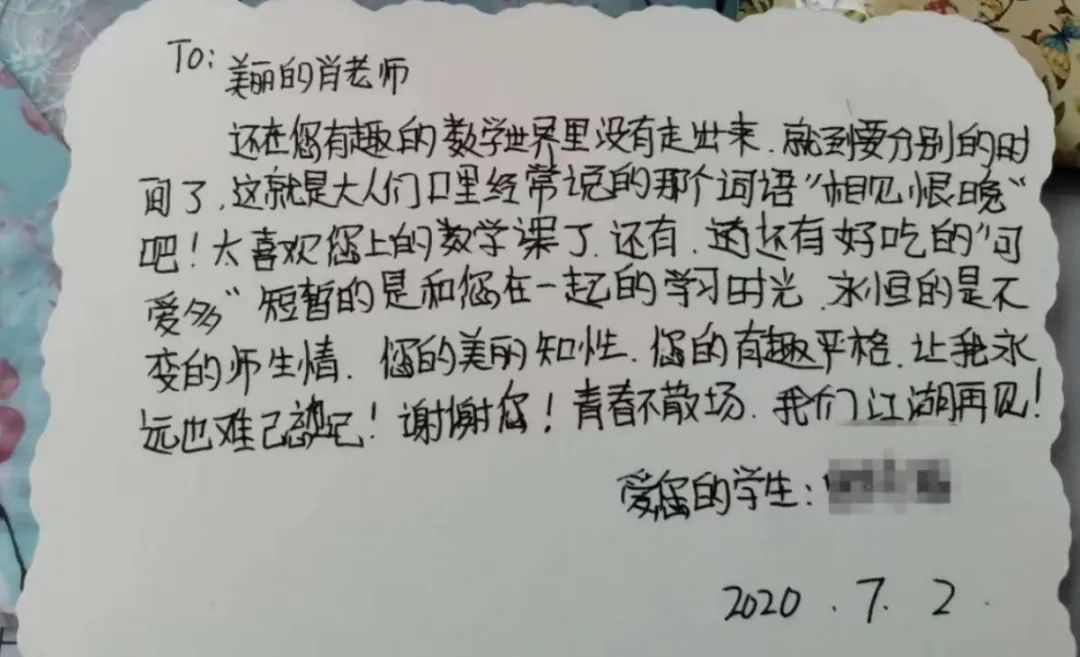 To:
美丽的肖老师
还在您有趣的数学世界里没有走出来.就到要分别的时
间了.这就是大人们口里经常说的那个词语"相见恨晚"
吧!太喜欢您上的数学课了.还有.还有好吃的"可
爱多"短暂的是和您在一起的学习时光.永恒的是不
变的师生情.您的美丽知性.您的有趣严格.让我永
远也难已忘记!谢谢您!青春不散场.我们江湖再见!
爱您的学生:
2020.7.2.